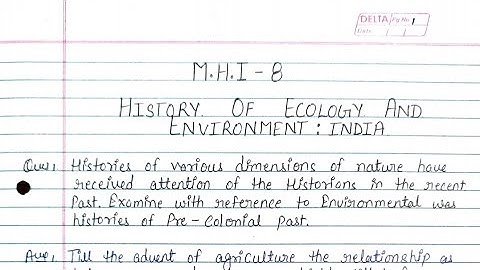 DELTA Pg No. 1
Date
M.H.I - 8
HISTORY OF ECOLOGY AND
ENVIRONMENT : INDIA
Ques1. Histories of various dimensions of nature have
received attention of the Historians in the recent
Past. Examine with reference to Environmental was
histories of Pre - Colonial Past.
Ans1. Till the advent of agriculture the relationship as